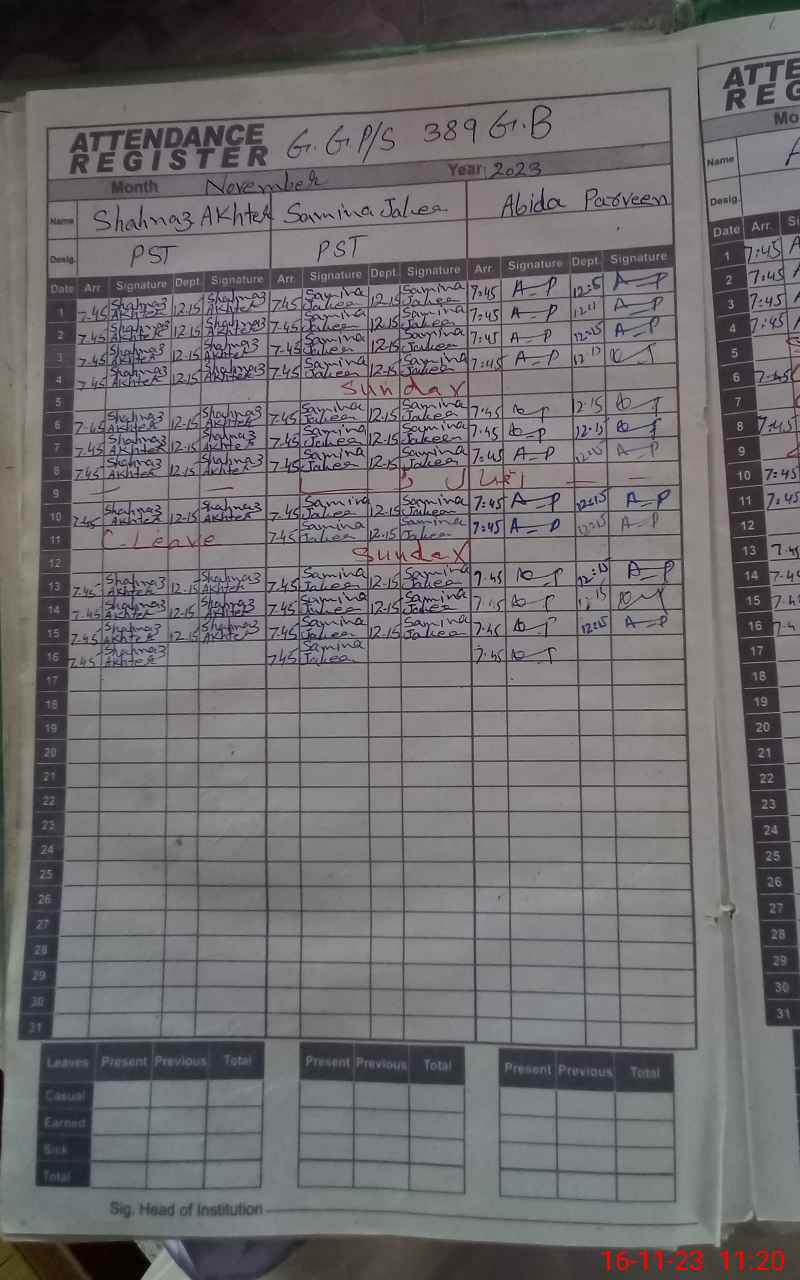 ATTENDANCE REGISTER G.G.P/S 389 G.B
Month November Year 2023
Name Shahnaz Akhter Samina Jabeen Abida Parveen
Desig. PST PST
Date Arr. Signature Dept. Signature Arr. Signature Dept. Signature Arr. Signature Dept. Signature
1 7.45 Shahnaz Akhter 12.15 Shahnaz Akhter 7.45 Samina Jabeen 12.15 Samina Jabeen 7:45 A-P A-P
2 7.45 Shahnaz Akhter 12.15 Shahnaz Akhter 7.45 Samina Jabeen 12.15 Samina Jabeen 7:45 A-P A-P
3 7.45 Shahnaz Akhter 12.15 Shahnaz Akhter 7.45 Samina Jabeen 12.15 Samina Jabeen 7:45 A-P 12:15 A-P
4 7.45 Shahnaz Akhter 12.15 Shahnaz Akhter 7.45 Samina Jabeen 12.15 Samina Jabeen 7:45 A-P 12:15
5 Sunday
6 7.45 Shahnaz Akhter 12.15 Shahnaz Akhter 7.45 Samina Jabeen 12.15 Samina Jabeen 7.45 12.15
7 7.45 Shahnaz Akhter 12.15 Shahnaz Akhter 7.45 Samina Jabeen 12.15 Samina Jabeen 7.45 12.15
8 7.45 Shahnaz Akhter 12.15 Shahnaz Akhter 7.45 Samina Jabeen 12.15 Samina Jabeen 7:45 A-P 12:15 A-P
9
10 7.45 Shahnaz Akhter 12.15 Shahnaz Akhter 7.45 Samina Jabeen 12.15 Samina Jabeen 7:45 A-P 12:15 A-P
11 C-Leave 7.45 Samina Jabeen 12.15 Samina Jabeen 7:45 A-P 12:15 A-P
12 Sunday
13 7.45 Shahnaz Akhter 12.15 Shahnaz Akhter 7.45 Samina Jabeen 12.15 Samina Jabeen 7.45 12:15 A-P
14 7.45 Shahnaz Akhter 12.15 Shahnaz Akhter 7.45 Samina Jabeen 12.15 Samina Jabeen
15 7.45 Shahnaz Akhter 12.15 Shahnaz Akhter 7.45 Samina Jabeen 12.15 Samina Jabeen 7.45 12:15 A-P
16 7.45 Shahnaz Akhter 7.45 Samina Jabeen 7.45
17
18
19
20
21
22
23
24
25
26
27
28
29
30
31
Leaves Present Previous Total Present Previous Total Present Previous Total
Casual
Earned
Sick
Total
Sig. Head of Institution
Name
Desig.
Date Arr.
1 7:45
2 7:45
3 7:45
4 7:45
5
6 7:45
7
8 7:45
9
10 7:45
11 7:45
12
13 7.45
14
15
16
17
18
19
20
21
22
23
24
25
26
27
28
29
30
31
16-11-23 11:20